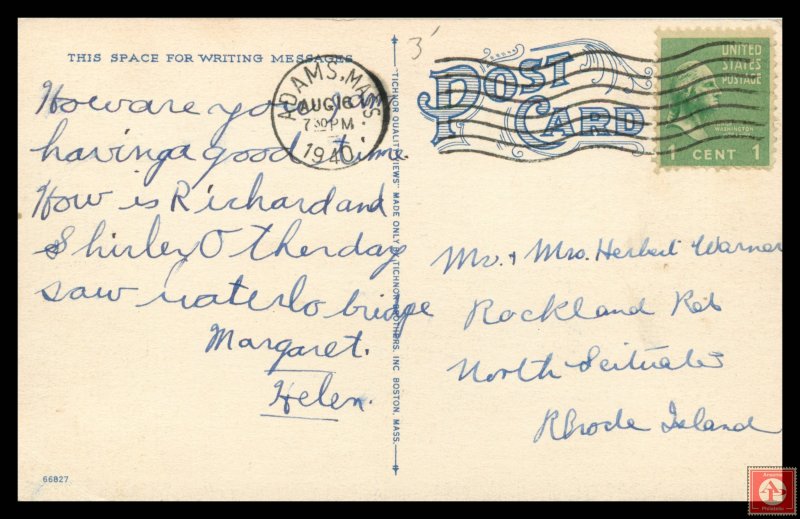 THIS SPACE FOR WRITING MESSAGES
3
ADAMS, MASS.
AUG 16
7 30 PM
1940
POST CARD
UNITED
STATES
POSTAGE
WASHINGTON
1 CENT 1
How are you
having a good time
How is Richard and
Shirley Otherday
saw waterlo bridge
Margaret.
Helen.
"TICHNOR QUALITY VIEWS" MADE ONLY BY TICHNOR BROTHERS, INC BOSTON, MASS.
Mr. + Mrs. Herbert Warner
Rockland Rd
North Scituate
Rhode Island
66827